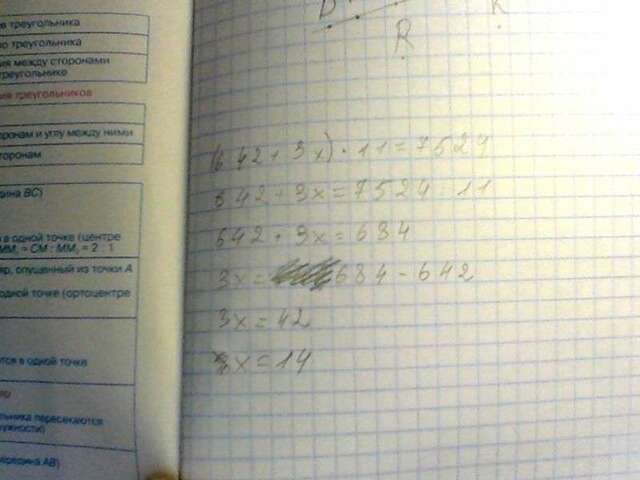 в треугольника
о треугольника
ия между сторонами
треугольнике
ия треугольников
оронам и углу между ними
торонам
дина BC)
в одной точке (центре
= CM : MM₁ = 2 : 1
яр, опущенный из точки A
одной точке (ортоцентре
тся в одной точке
льника пересекаются
ружности)
середина AB)
R
(642 + 3x) · 11 = 7524
642 + 3x = 7524 : 11
642 + 3x = 684
3x = 684 - 642
3x = 42
x = 14